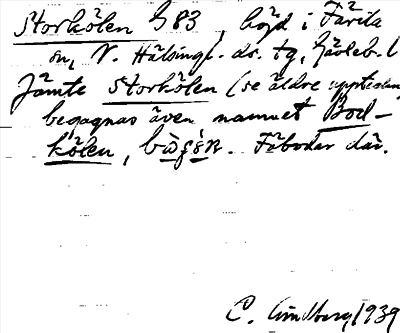 Storkölen G 83, höjd i Färila
sn, N. Hälsingl. ds. tg, Gävleb. l
Jämte Storkölen (se äldre uppteckn.
begagnas även namnet Bod-
kölen, . Fäbodar där.
C. Lindberg 1939